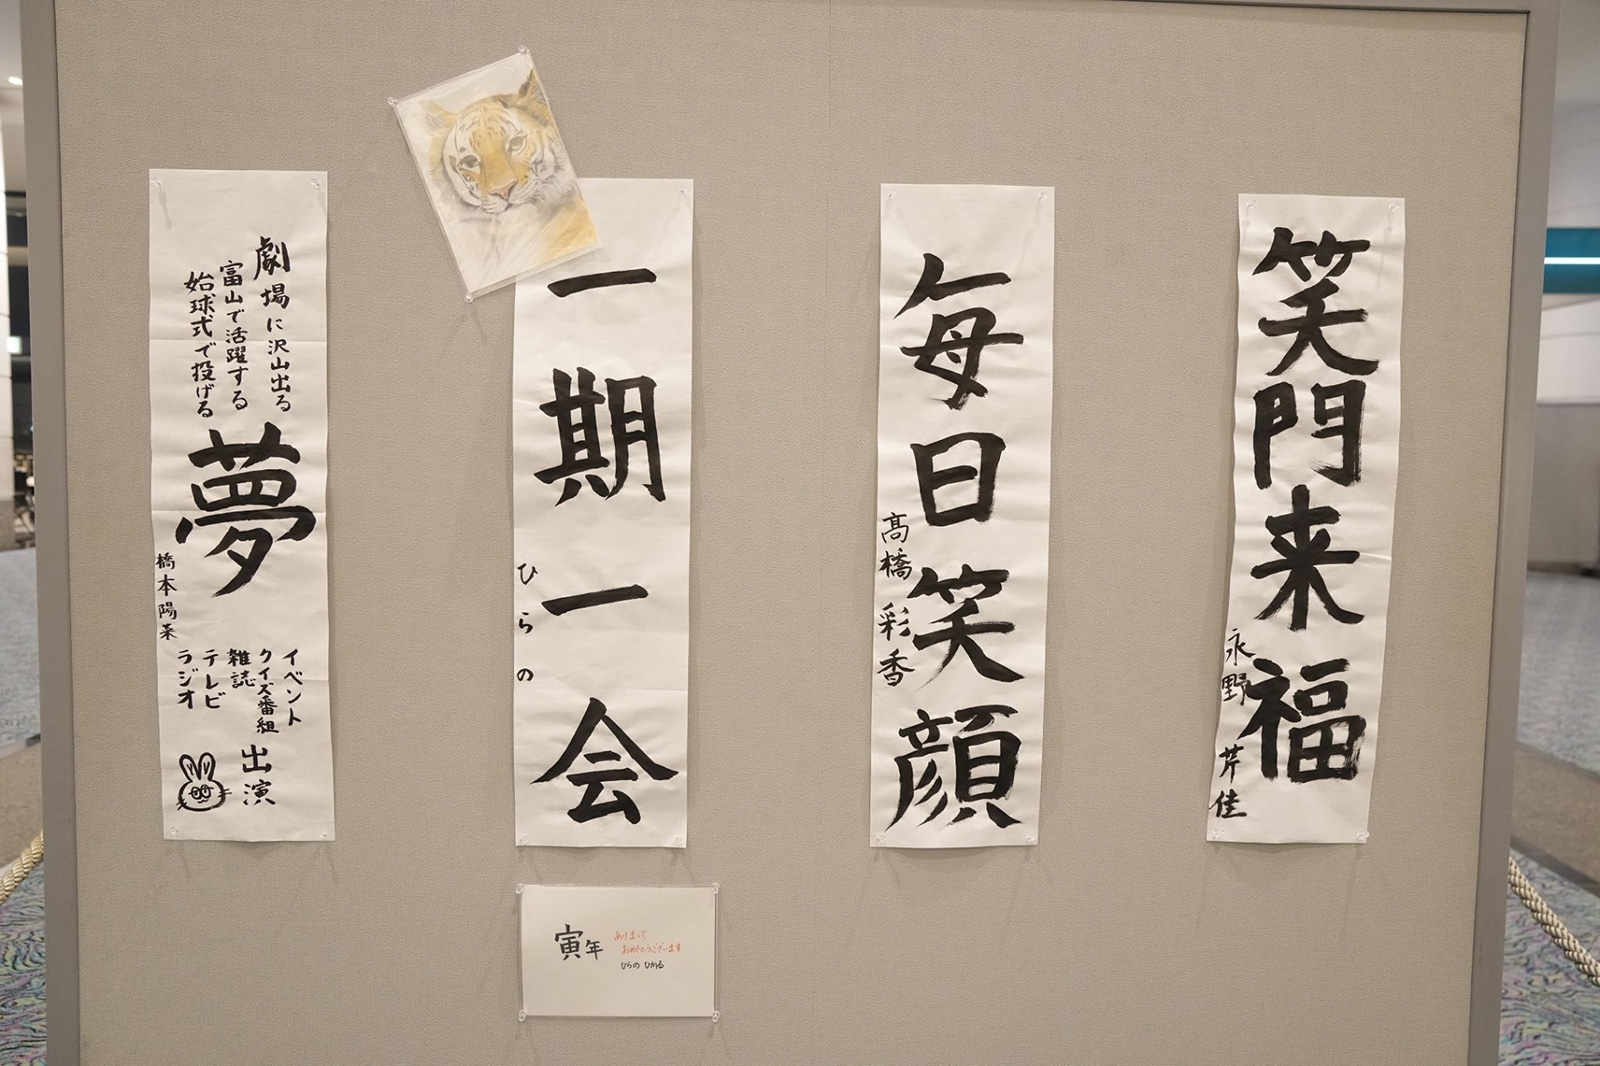 笑門来福
永野芹佳
毎日笑顔
髙橋彩香
一期一会
ひらの
劇場に沢山出る
富山で活躍する
始球式で投げる
夢
橋本陽菜
イベント
クイズ番組
雑誌
テレビ
ラジオ
出演
寅年
あけまして
おめでとうございます
ひらの ひかる